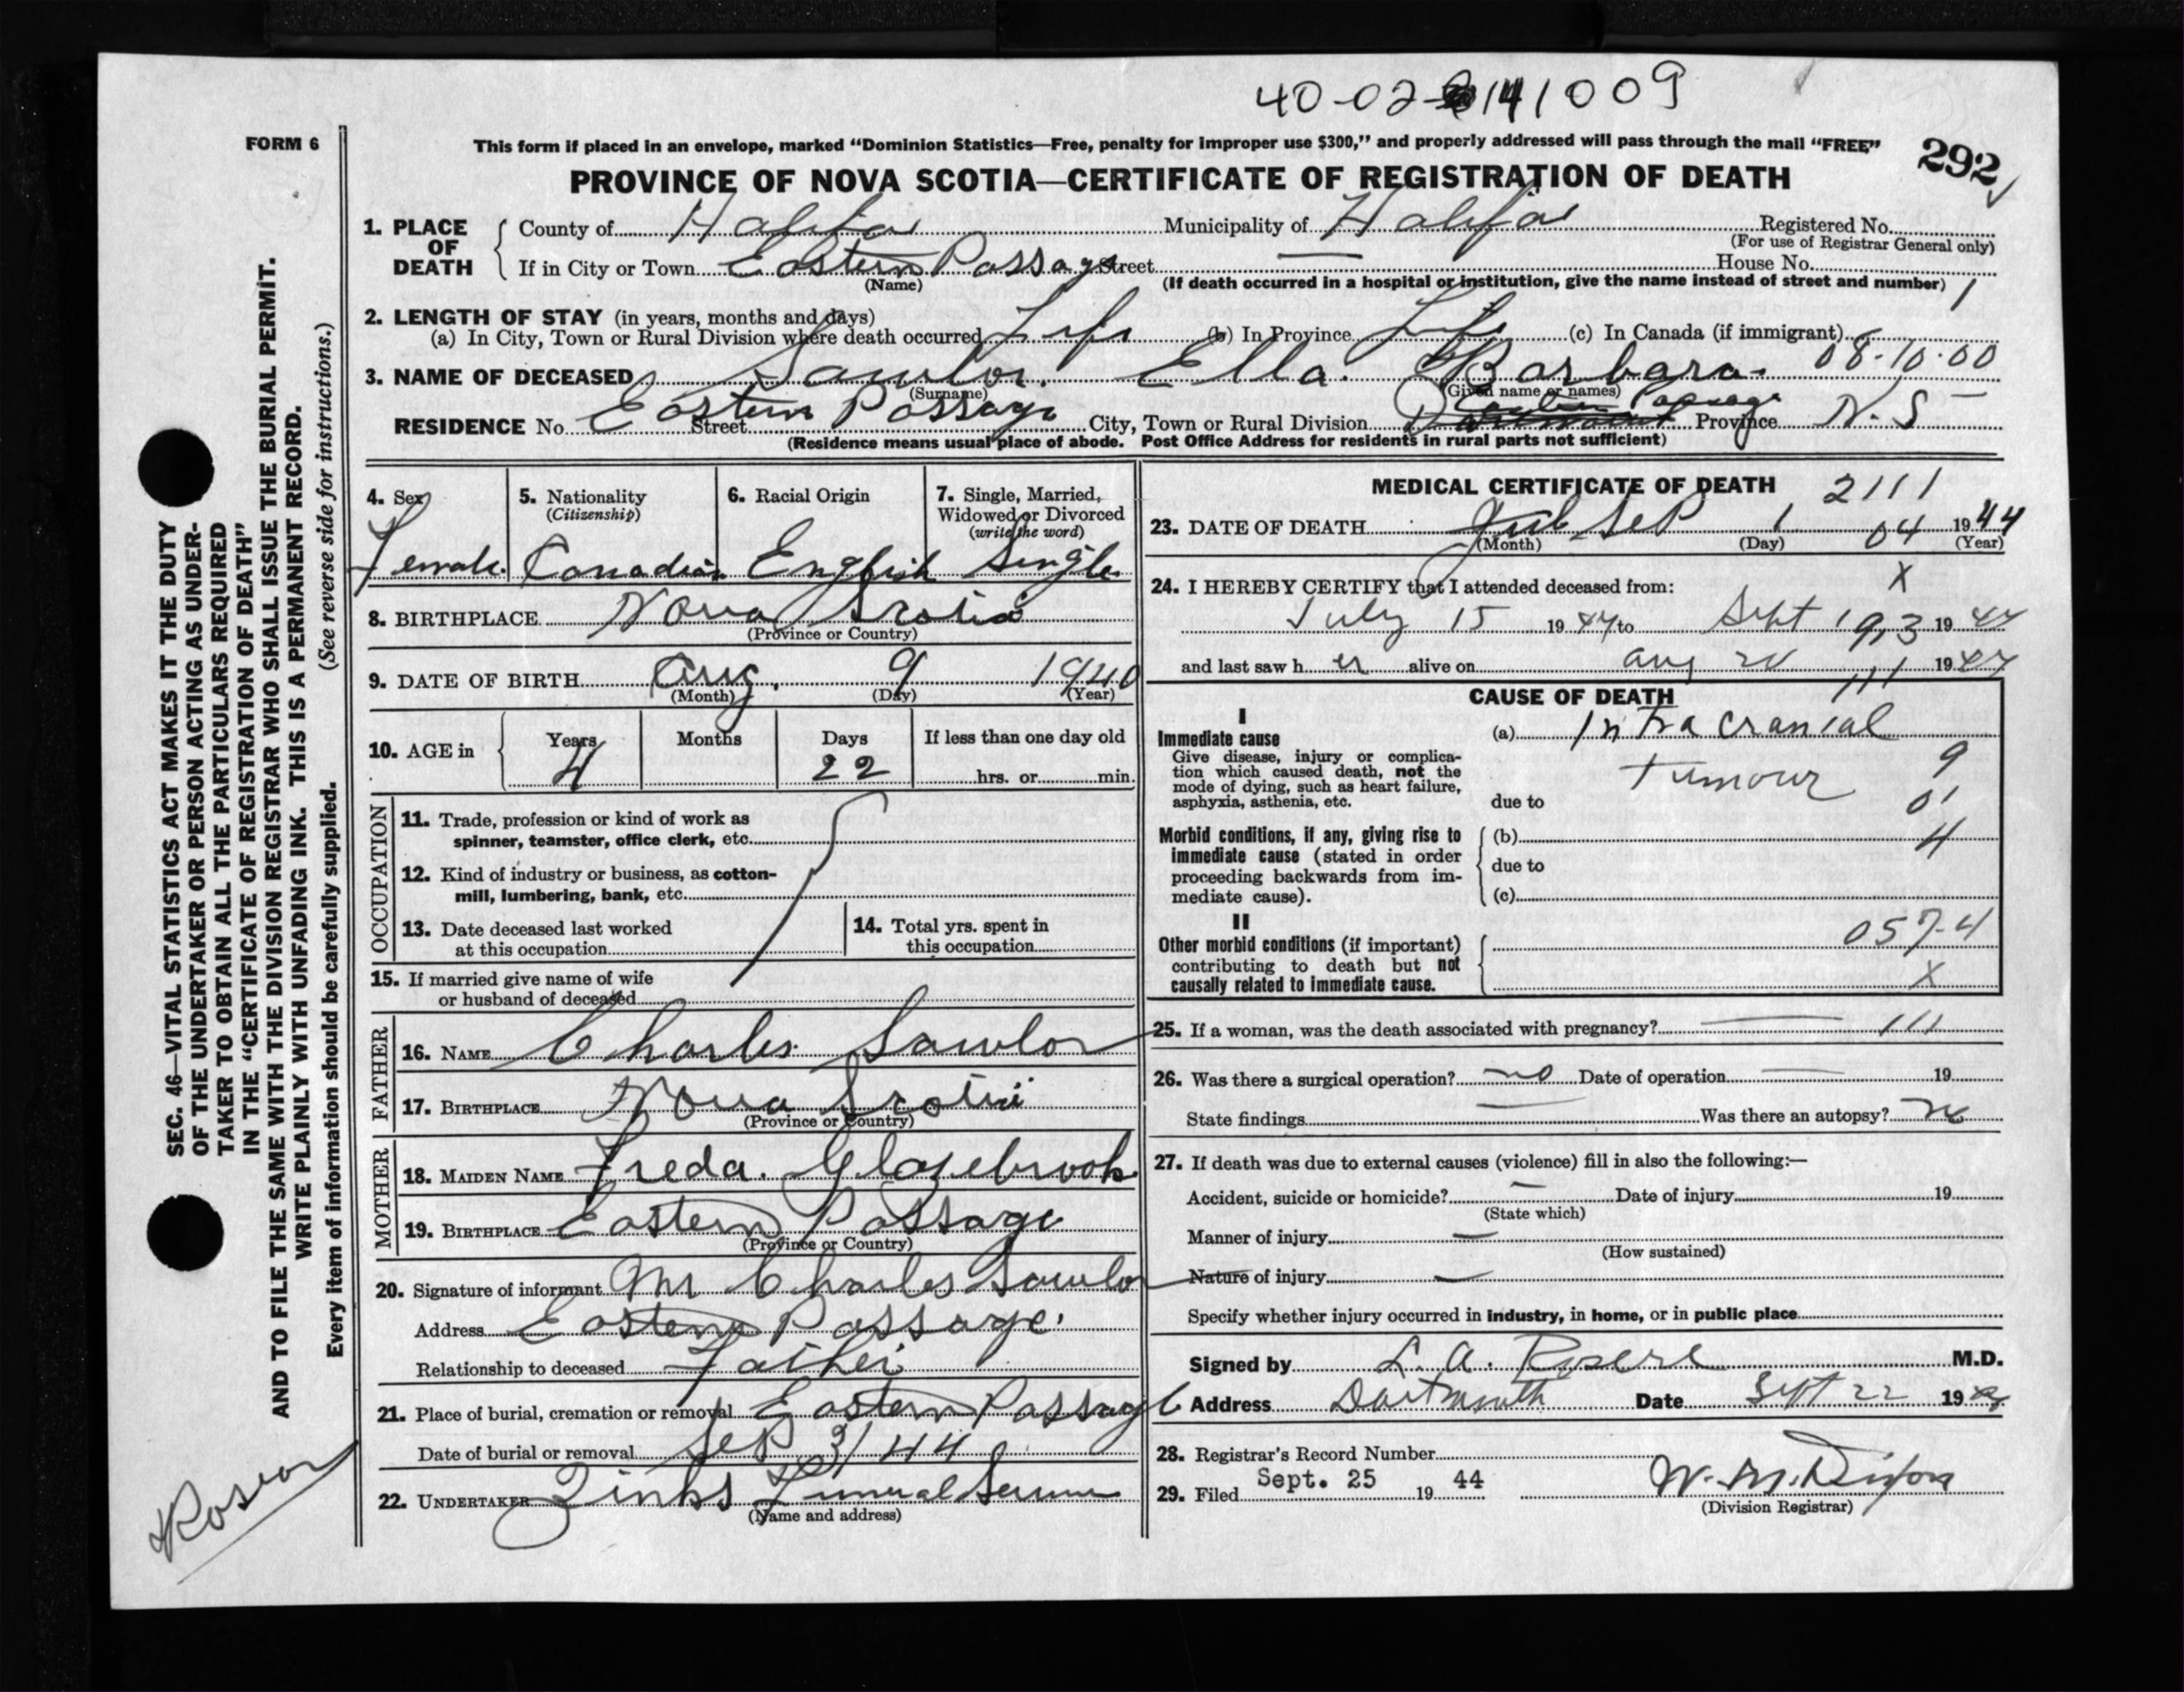 40-02-141009
FORM 6
This form if placed in an envelope, marked “Dominion Statistics—Free, penalty for improper use $300,” and properly addressed will pass through the mail “FREE”
292
PROVINCE OF NOVA SCOTIA—CERTIFICATE OF REGISTRATION OF DEATH
1. PLACE OF DEATH
County of Halifax Municipality of Halifax Registered No.
(For use of Registrar General only)
If in City or Town Eastern Passage Street — House No.
(Name) (If death occurred in a hospital or institution, give the name instead of street and number) 1
2. LENGTH OF STAY (in years, months and days)
(a) In City, Town or Rural Division where death occurred Life (b) In Province Life (c) In Canada (if immigrant)
3. NAME OF DECEASED Sawlor. Ella. Barbara. 08-10-00
(Surname) (Given name or names)
RESIDENCE No. Eastern Passage Street City, Town or Rural Division Eastern Passage Province N.S
(Residence means usual place of abode. Post Office Address for residents in rural parts not sufficient)
4. Sex
Female
5. Nationality
(Citizenship)
Canadian
6. Racial Origin
English
7. Single, Married,
Widowed or Divorced
(write the word)
Single
8. BIRTHPLACE Nova Scotia
(Province or Country)
9. DATE OF BIRTH Aug. 9 1940
(Month) (Day) (Year)
10. AGE in
Years Months Days If less than one day old
4 22 hrs. or min.
OCCUPATION
11. Trade, profession or kind of work as
spinner, teamster, office clerk, etc.
12. Kind of industry or business, as cotton-
mill, lumbering, bank, etc.
13. Date deceased last worked
at this occupation
14. Total yrs. spent in
this occupation
15. If married give name of wife
or husband of deceased
FATHER
16. NAME Charles Sawlor
17. BIRTHPLACE Nova Scotia
(Province or Country)
MOTHER
18. MAIDEN NAME Freda. Glazebrook
19. BIRTHPLACE Eastern Passage
(Province or Country)
20. Signature of informant Mr Charles Sawlor
Address Eastern Passage.
Relationship to deceased Father
21. Place of burial, cremation or removal Eastern Passage
Date of burial or removal Sep 3/44
22. UNDERTAKER Zinks Funeral Service
(Name and address)
MEDICAL CERTIFICATE OF DEATH 2111
23. DATE OF DEATH Sep 1 04 1944
(Month) (Day) (Year)
24. I HEREBY CERTIFY that I attended deceased from: X
July 15 1944 to Sept 1 9,3 1944
and last saw h er alive on Aug 1944
111
CAUSE OF DEATH
I
Immediate cause
Give disease, injury or complica-
tion which caused death, not the
mode of dying, such as heart failure,
asphyxia, asthenia, etc.
(a) Intracranial
tumour 9
due to 01
Morbid conditions, if any, giving rise to
immediate cause (stated in order
proceeding backwards from im-
mediate cause).
(b) 4
due to
(c)
II
Other morbid conditions (if important)
contributing to death but not
causally related to immediate cause.
057-4
X
25. If a woman, was the death associated with pregnancy? — 111
26. Was there a surgical operation? no Date of operation — 19
State findings — Was there an autopsy? no
27. If death was due to external causes (violence) fill in also the following:—
Accident, suicide or homicide? — Date of injury 19
(State which)
Manner of injury —
(How sustained)
Nature of injury —
Specify whether injury occurred in industry, in home, or in public place
Signed by L. A. M.D.
Address Dartmouth Date Sept 22 19
28. Registrar's Record Number
29. Filed Sept. 25 19 44 W. M. Dixon
(Division Registrar)
SEC. 46—VITAL STATISTICS ACT MAKES IT THE DUTY
OF THE UNDERTAKER OR PERSON ACTING AS UNDER-
TAKER TO OBTAIN ALL THE PARTICULARS REQUIRED
IN THE “CERTIFICATE OF REGISTRATION OF DEATH”
AND TO FILE THE SAME WITH THE DIVISION REGISTRAR WHO SHALL ISSUE THE BURIAL PERMIT.
WRITE PLAINLY WITH UNFADING INK. THIS IS A PERMANENT RECORD.
Every item of information should be carefully supplied. (See reverse side for instructions.)